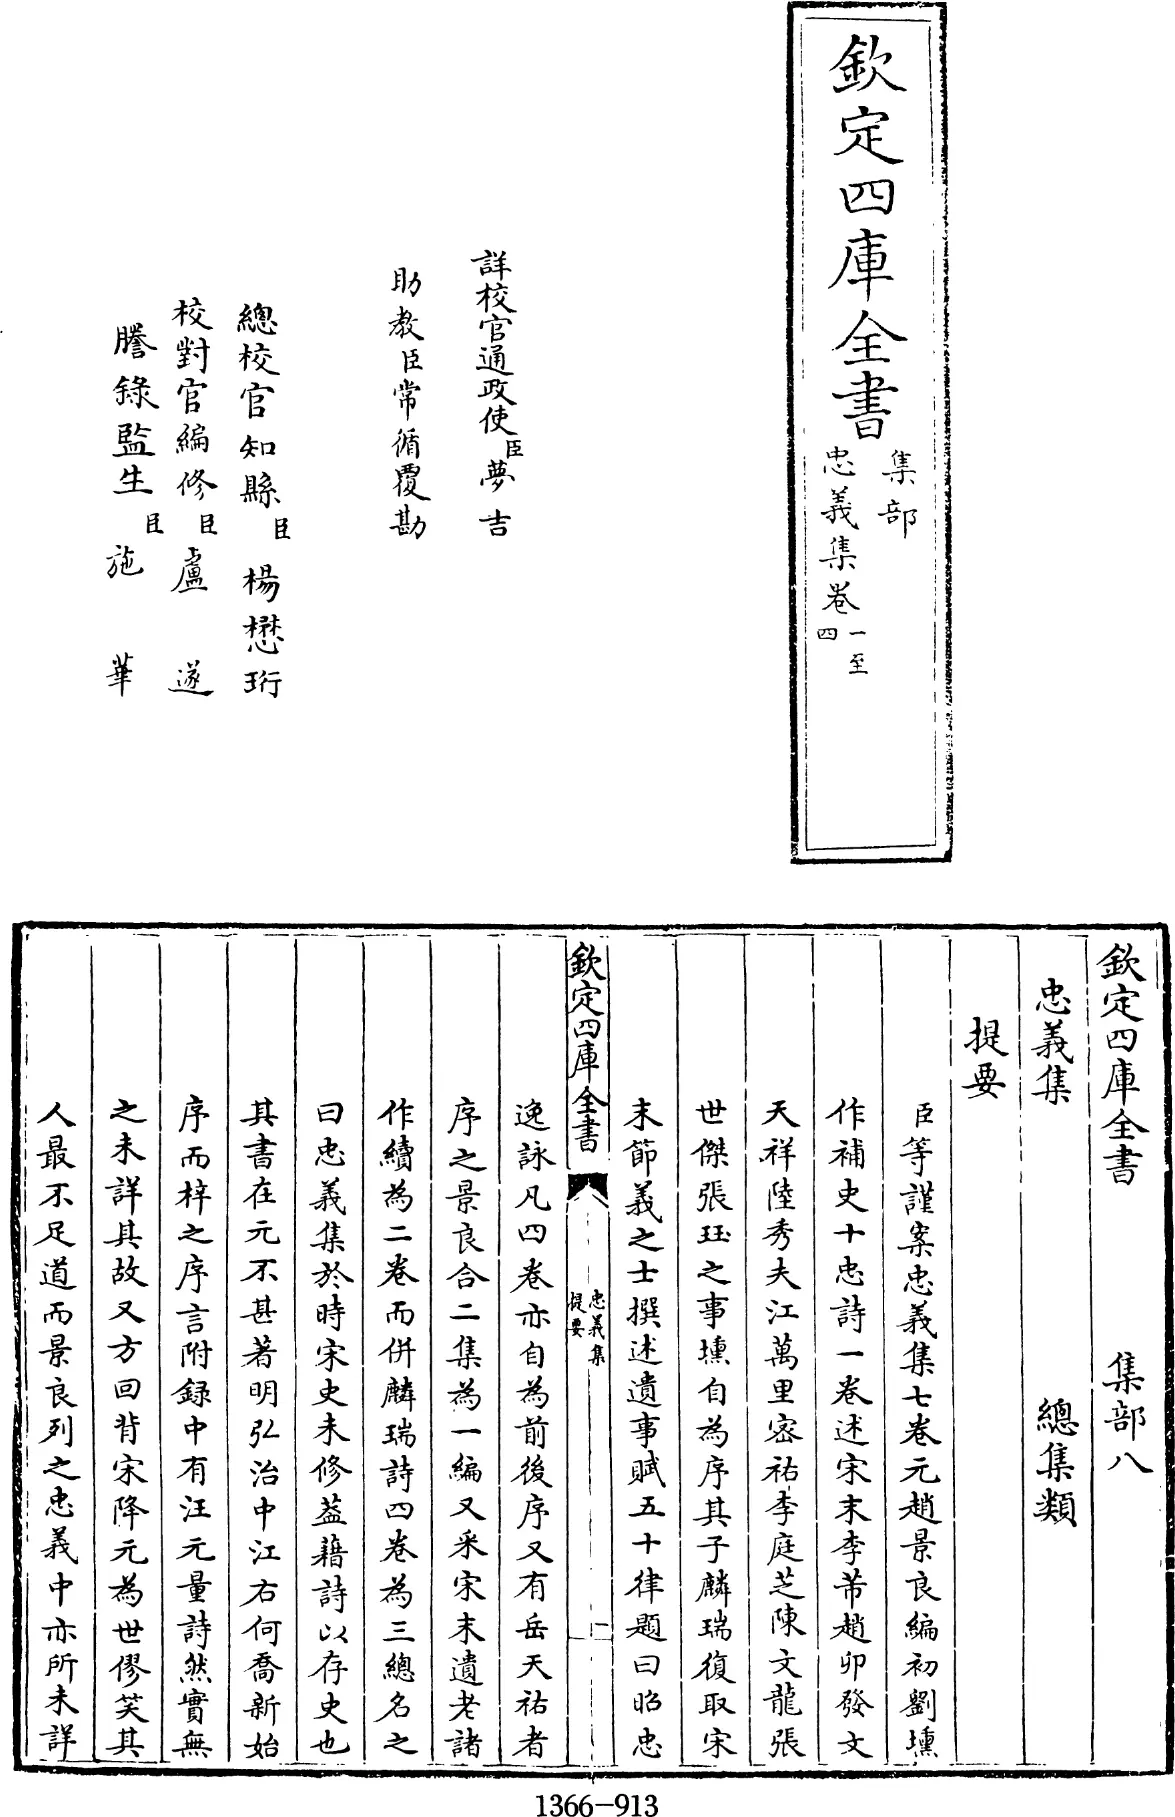 欽定四庫全書
集部
忠義集卷一至四
詳校官通政使臣夢吉
助教臣常循覆勘
總校官知縣臣楊懋珩
校對官編修臣盧遂
謄錄監生臣施華
欽定四庫全書 集部八
忠義集 總集類
提要
臣等謹案忠義集七卷元趙景良編初劉壎
作補史十忠詩一卷述宋末李芾趙卯發文
天祥陸秀夫江萬里密祐李庭芝陳文龍張
世傑張珏之事壎自為序其子麟瑞復取宋
末節義之士撰述遺事賦五十律題曰昭忠
欽定四庫全書
忠義集
提要
一
逸詠凡四卷亦自為前後序又有岳天祐者
序之景良合二集為一編又采宋末遺老諸
作續為二卷而併麟瑞詩四卷為三總名之
曰忠義集於時宋史未修葢藉詩以存史也
其書在元不甚著明弘治中江右何喬新始
序而梓之序言附録中有汪元量詩然實無
之未詳其故又方回背宋降元為世僇笑其
人最不足道而景良列之忠義中亦所未詳
1366-913